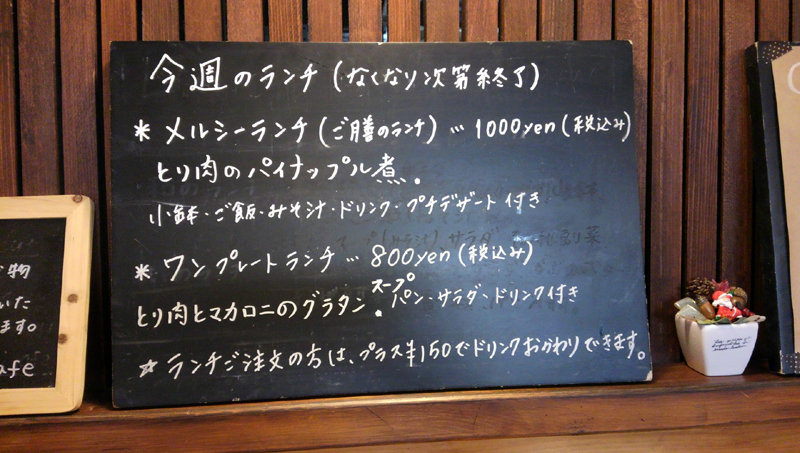 今週のランチ(なくなり次第終了)
* メルシーランチ(ご膳のランチ)… 1000yen(税込み)
とり肉のパイナップル煮.
小鉢・ご飯・みそ汁・ドリンク・プチデザート付き
* ワンプレートランチ… 800yen(税込み)
とり肉とマカロニのグラタン. スープ パン・サラダ・ドリンク付き
☆ ランチご注文の方は、プラス¥150でドリンクおかわりできます。
物
いた
ます。
afe